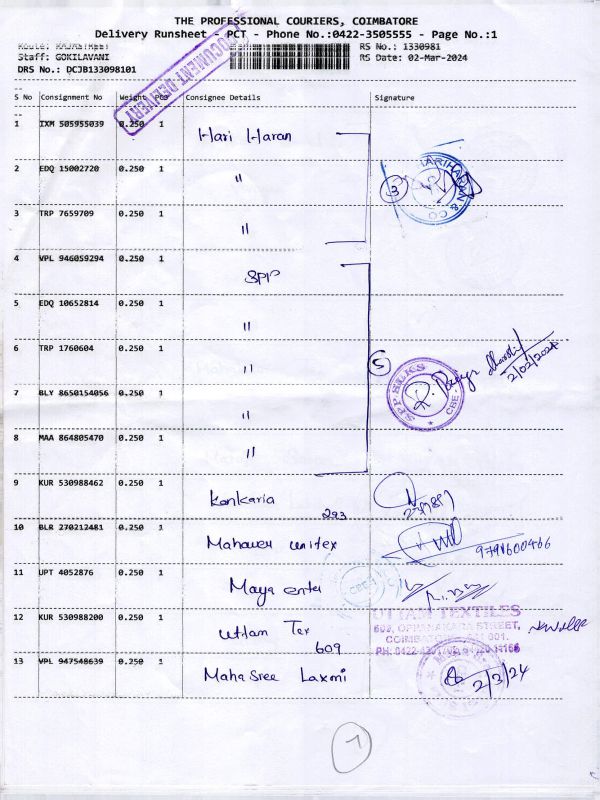 THE PROFESSIONAL COURIERS, COIMBATORE
Delivery Runsheet - PCT - Phone No.:0422-3505555 - Page No.:1
Route: RAJASTREET RS No.: 1330981
Staff: GOKILAVANI RS Date: 02-Mar-2024
DRS No.: DCJB133098101
DOCUMENT DELIVERY
S No Consignment No Weight PCS Consignee Details Signature
1 IXM 505955039 0.250 1 Hari Haran
2 EDQ 15002720 0.250 1 "
3 HARIHARAN & CO
3 TRP 7659709 0.250 1 "
4 VPL 946059294 0.250 1 SPP
5 EDQ 10652814 0.250 1 "
6 TRP 1760604 0.250 1 "
5 SPP SILKS CBE 2/02/2024
7 BLY 8650154056 0.250 1 "
8 MAA 864805470 0.250 1 "
9 KUR 530988462 0.250 1 Kankaria
293
10 BLR 270212481 0.250 1 Mahaveer unitex 9791600466
11 UPT 4052876 0.250 1 Maya enter
12 KUR 530988200 0.250 1 Uttam Tex
609
UTTAM TEXTILES
OPPANAKARA STREET,
13 VPL 947548639 0.250 1 Maha Sree Laxmi 2/3/24
7